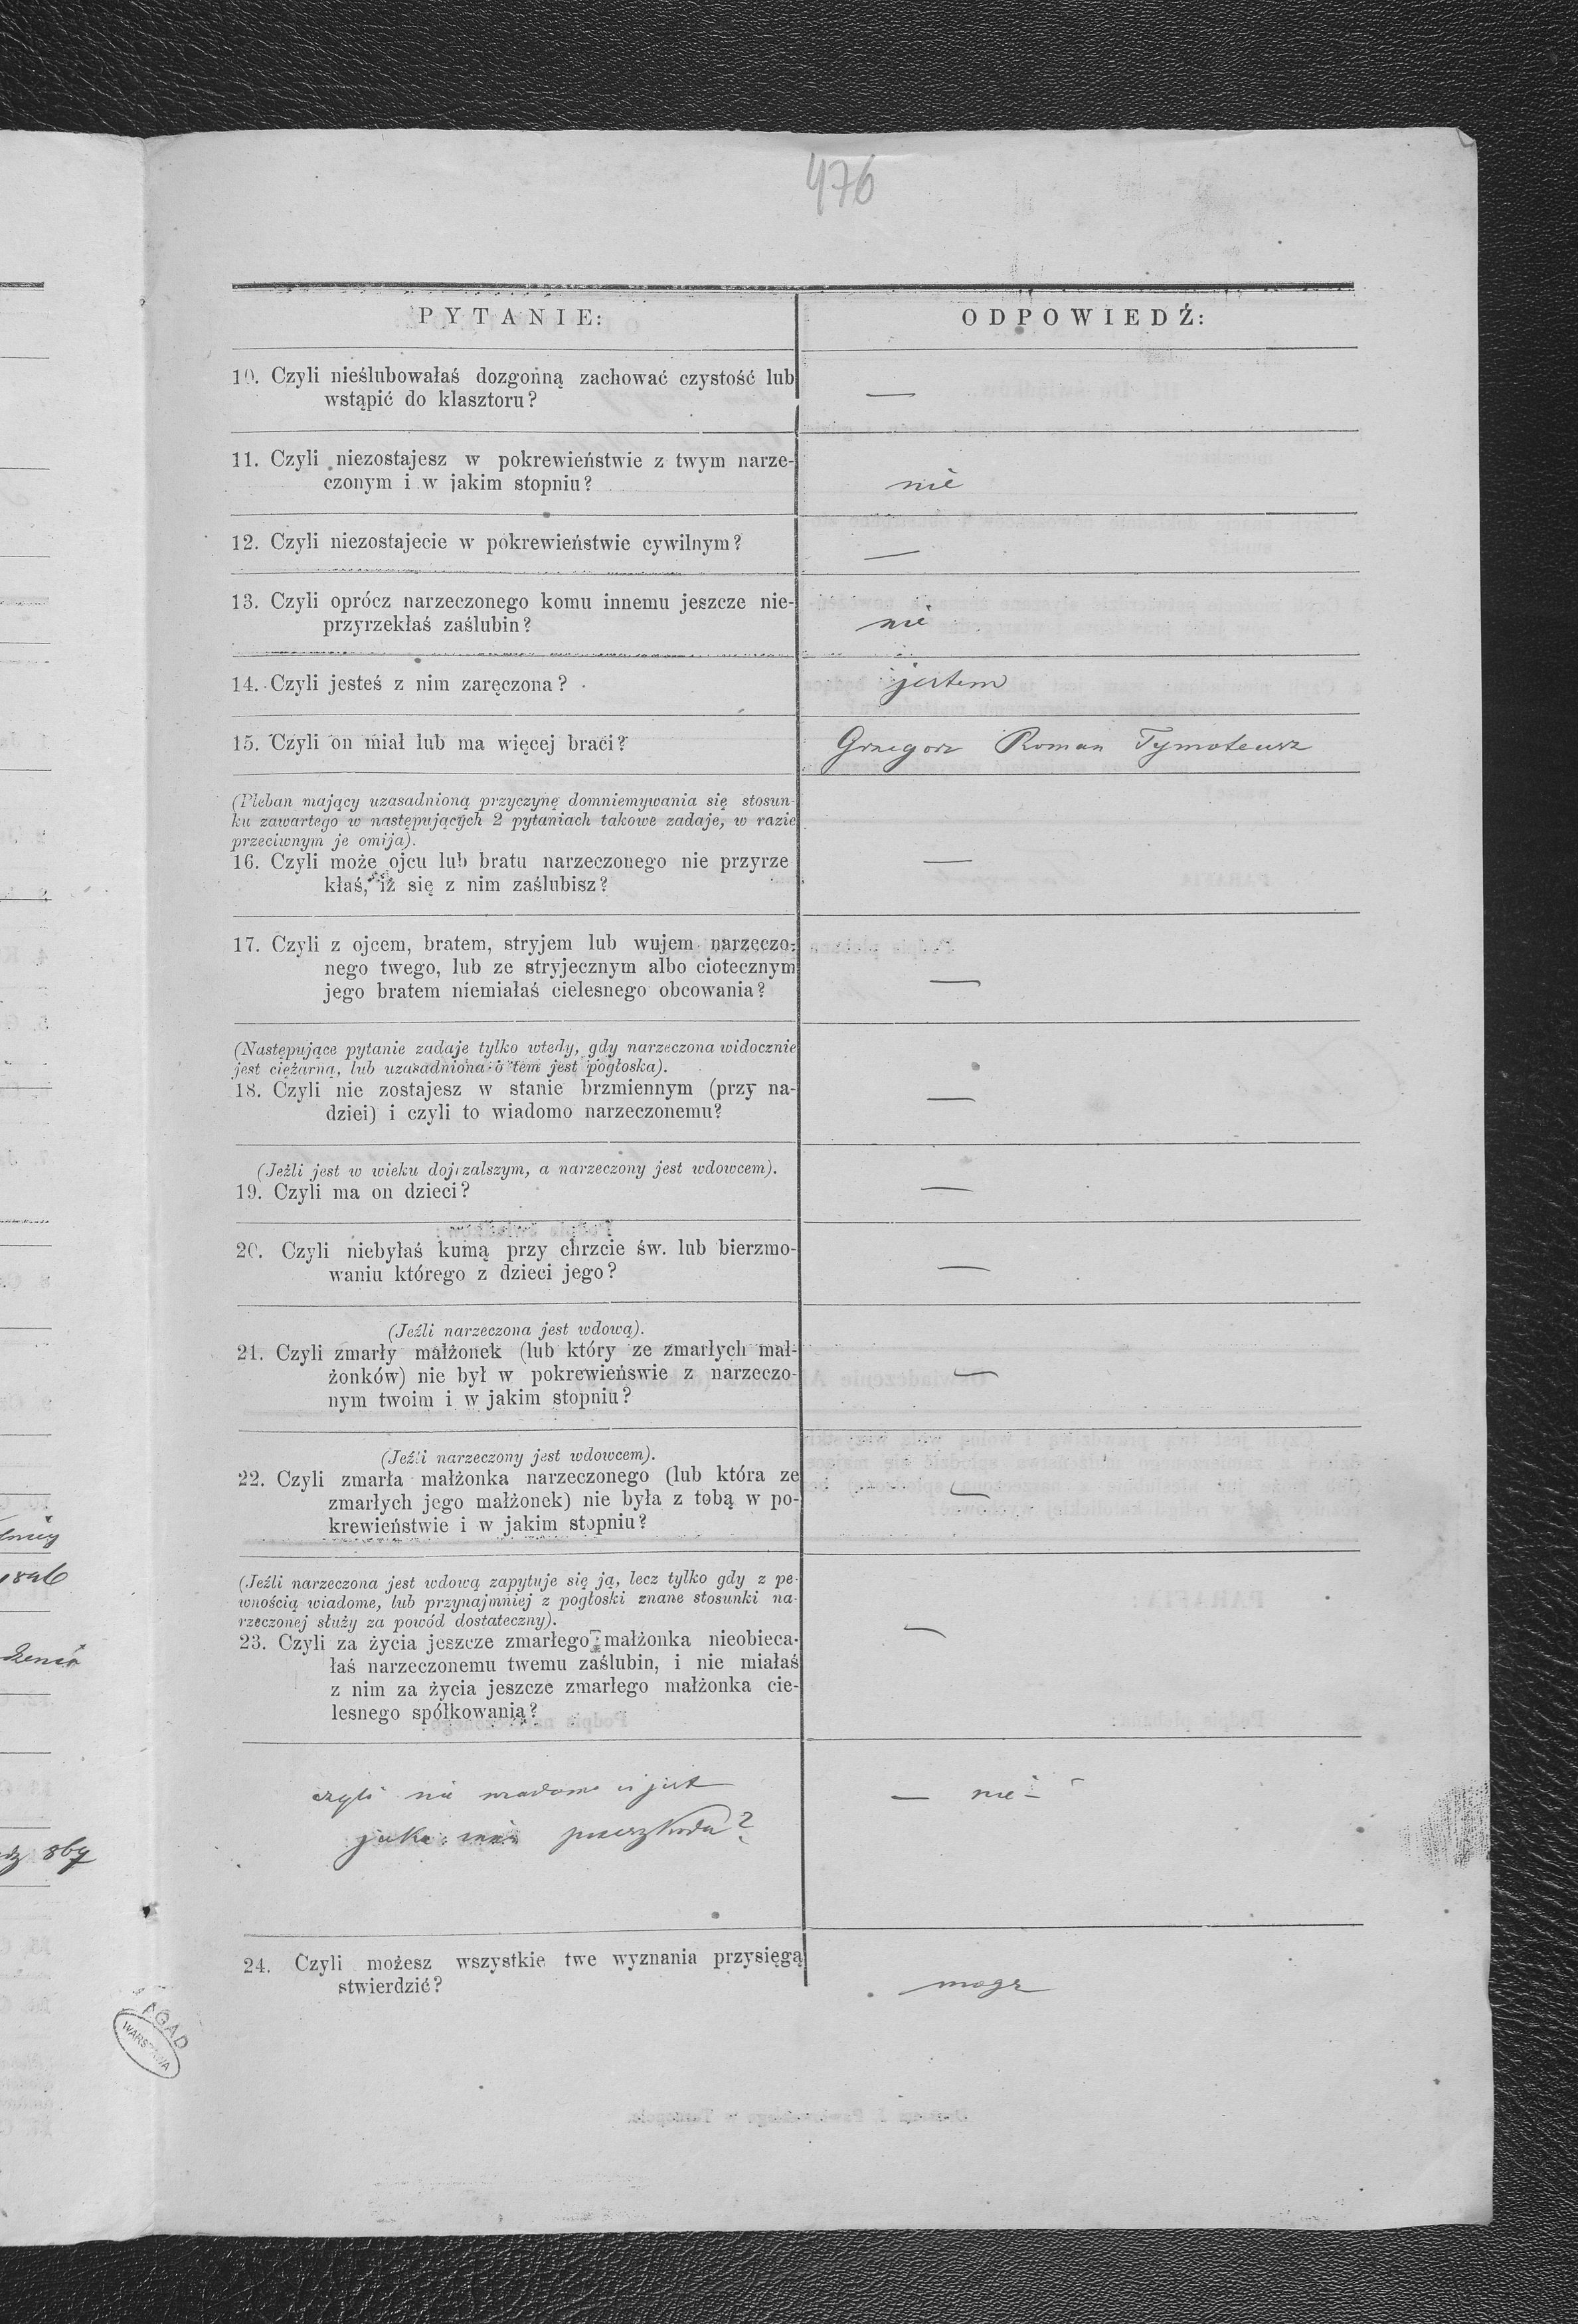 476
PYTANIE:
ODPOWIEDŹ:
10. Czyli nieślubowałaś dozgonną zachować czystość lub
wstąpić do klasztoru?
—
11. Czyli niezostajesz w pokrewieństwie z twym narze-
czonym i w jakim stopniu?
nie
12. Czyli niezostajecie w pokrewieństwie cywilnym?
—
13. Czyli oprócz narzeczonego komu innemu jeszcze nie-
przyrzekłaś zaślubin?
nie
14. Czyli jesteś z nim zaręczona?
jestem
15. Czyli on miał lub ma więcej braci?
Grzegorz Roman Tymoteusz
(Pleban mający uzasadnioną przyczynę domniemywania się stosun-
ku zawartego w następujących 2 pytaniach takowe zadaje, w razie
przeciwnym je omija).
16. Czyli może ojcu lub bratu narzeczonego nie przyrze
kłaś, iż się z nim zaślubisz?
—
17. Czyli z ojcem, bratem, stryjem lub wujem narzeczo-
nego twego, lub ze stryjecznym albo ciotecznym
jego bratem niemiałaś cielesnego obcowania?
—
(Następujące pytanie zadaje tylko wtedy, gdy narzeczona widocznie
jest ciężarną, lub uzasadniona o tem jest pogłoska).
18. Czyli nie zostajesz w stanie brzmiennym (przy na-
dziei) i czyli to wiadomo narzeczonemu?
—
(Jeżli jest w wieku dojrzalszym, a narzeczony jest wdowcem).
19. Czyli ma on dzieci?
—
20. Czyli niebyłaś kumą przy chrzcie św. lub bierzmo-
waniu którego z dzieci jego?
—
(Jeźli narzeczona jest wdową).
21. Czyli zmarły małżonek (lub który ze zmarłych mał-
żonków) nie był w pokrewieńswie z narzeczo-
nym twoim i w jakim stopniu?
—
(Jeźli narzeczony jest wdowcem).
22. Czyli zmarła małżonka narzeczonego (lub która ze
zmarłych jego małżonek) nie była z tobą w po-
krewieństwie i w jakim stopniu?
—
(Jeźli narzeczona jest wdową zapytuje się ją, lecz tylko gdy z pe-
wnością wiadome, lub przynajmniej z pogłoski znane stosunki na-
rzeczonej służy za powód dostateczny).
23. Czyli za życia jeszcze zmarłego małżonka nieobieca-
łaś narzeczonemu twemu zaślubin, i nie miałaś
z nim za życia jeszcze zmarłego małżonka cie-
lesnego spółkowania?
—
czyli nie jest
jaka przeszkoda?
— nie —
24. Czyli możesz wszystkie twe wyznania przysięgą
stwierdzić?
mogę
AGAD
WARSZAWA